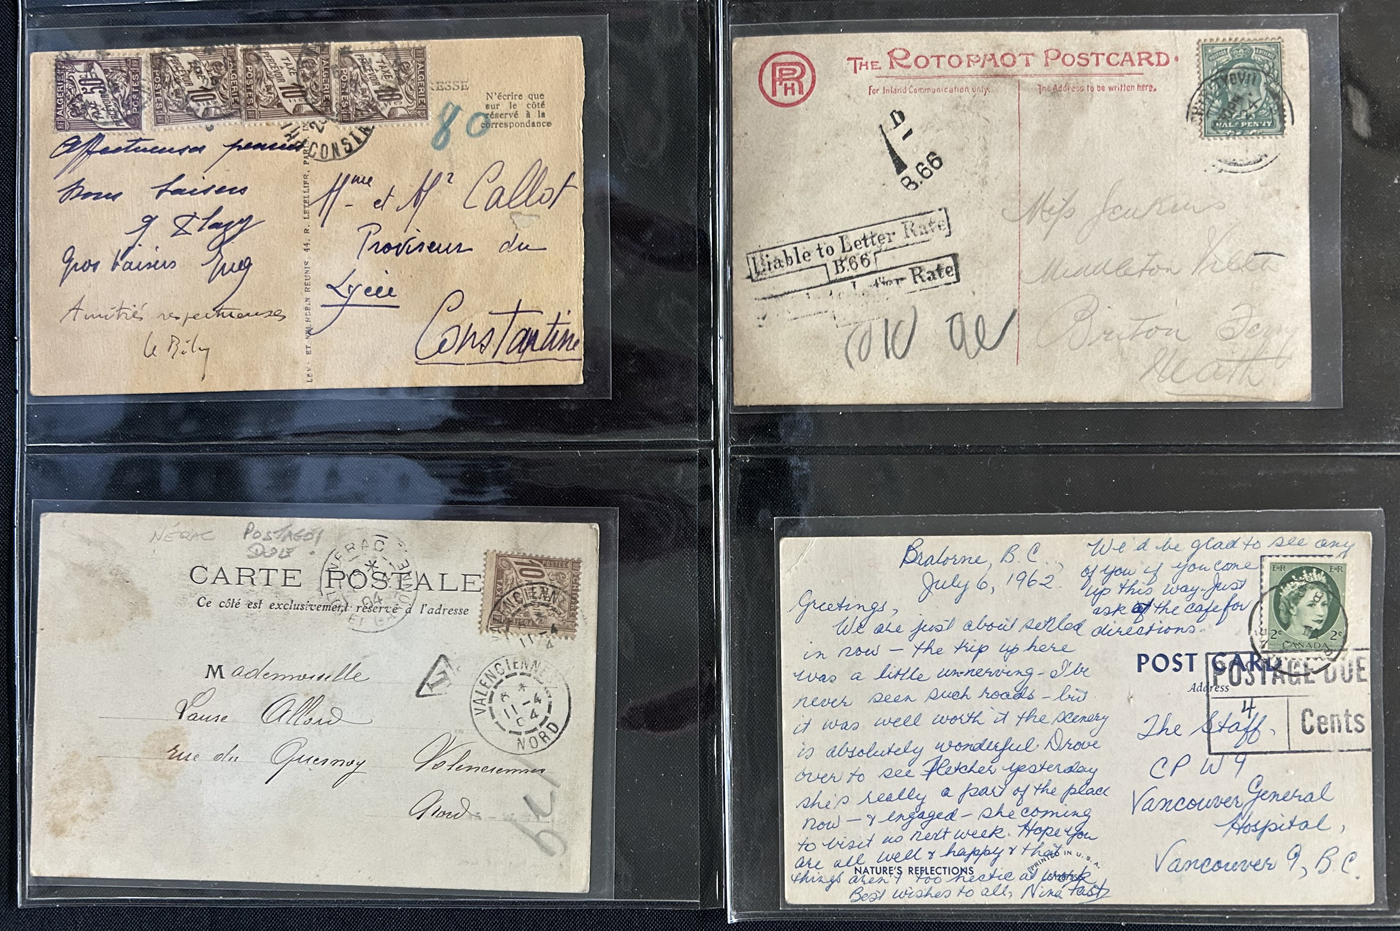 ALGERIE POSTES 50c
ALGERIE POSTES TAXE A PERCEVOIR 10c
ALGERIE POSTES TAXE A PERCEVOIR 10c
ALGERIE POSTES TAXE A PERCEVOIR 10c
CONSTAN
RESSE
N'écrire que
sur le côté
réservé à la
correspondance
80
Affectueuses pensées
bons baisers
Gros baisers
Amitiés respectueuses
LEVY ET NEURDEIN RÉUNIS, 44, R. LETELLIER, PARIS
Mme et Mr Callot
Proviseur du
Lycée
Constantine
RPH
THE ROTOPHOT POSTCARD.
For Inland Communication only.
The Address to be written here.
HALF PENNY
1D
B.66
Liable to Letter Rate
B.66
Letter Rate
Miss Jenkins
Middleton Villa
Briton Ferry
Neath
NÉRAC POSTAGE
DUE.
NERAC
04
LOT ET GARONNE
CARTE POSTALE
Ce côté est exclusivement réservé à l'adresse
10c
VALENCIENNES
T
VALENCIENNES
11-4
04
NORD
Mademoiselle
Laure Allard
rue du Quesnoy Valenciennes
Nord
Bralorne, B.C.,
July 6, 1962.
Greetings,
We are just about settled
in now – the trip up here
was a little unnerving – I've
never seen such roads – but
it was well worth it the scenery
is absolutely wonderful Drove
over to see Fletcher yesterday
she's really a part of the place
now – & engaged – she coming
to visit us next week. Hope you
are all well & happy & that
things aren't too hectic at work
Best wishes to all, Nina
We'd be glad to see any
of you if you come
up this way. Just
ask at the cafe for
directions.
NATURE'S REFLECTIONS
PRINTED IN U.S.A.
POST CARD
Address
E II R E II R
2c 2c
CANADA
POSTAGE DUE
4
Cents
The Staff,
CP W9
Vancouver General
Hospital,
Vancouver 9, B.C.